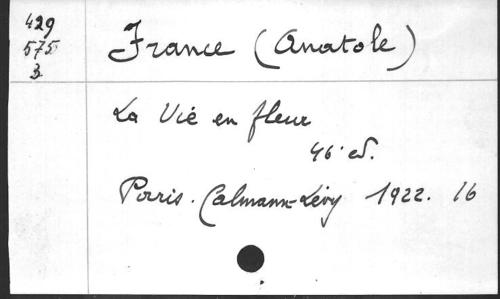 429
575
3
France (Anatole)
La Vie en fleur
46e ed.
Paris. Calmann-Lévy 1922. 16